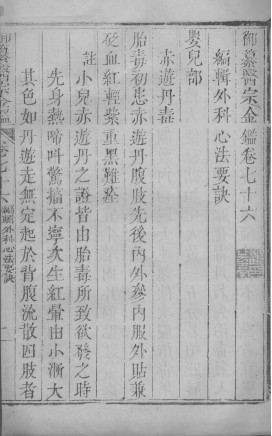 御纂醫宗金鑑卷七十六
編輯外科心法要訣
嬰兒部
赤遊丹毒
胎毒初患赤遊丹腹肢先後內外參內服外貼兼
砭血紅輕紫重黑難痊
註小兒赤遊丹之證皆由胎毒所致欲發之時
先身熱啼叫驚搐不寧次生紅暈由小漸大
其色如丹遊走無定起於背腹流散四肢者
編輯外科心法要訣